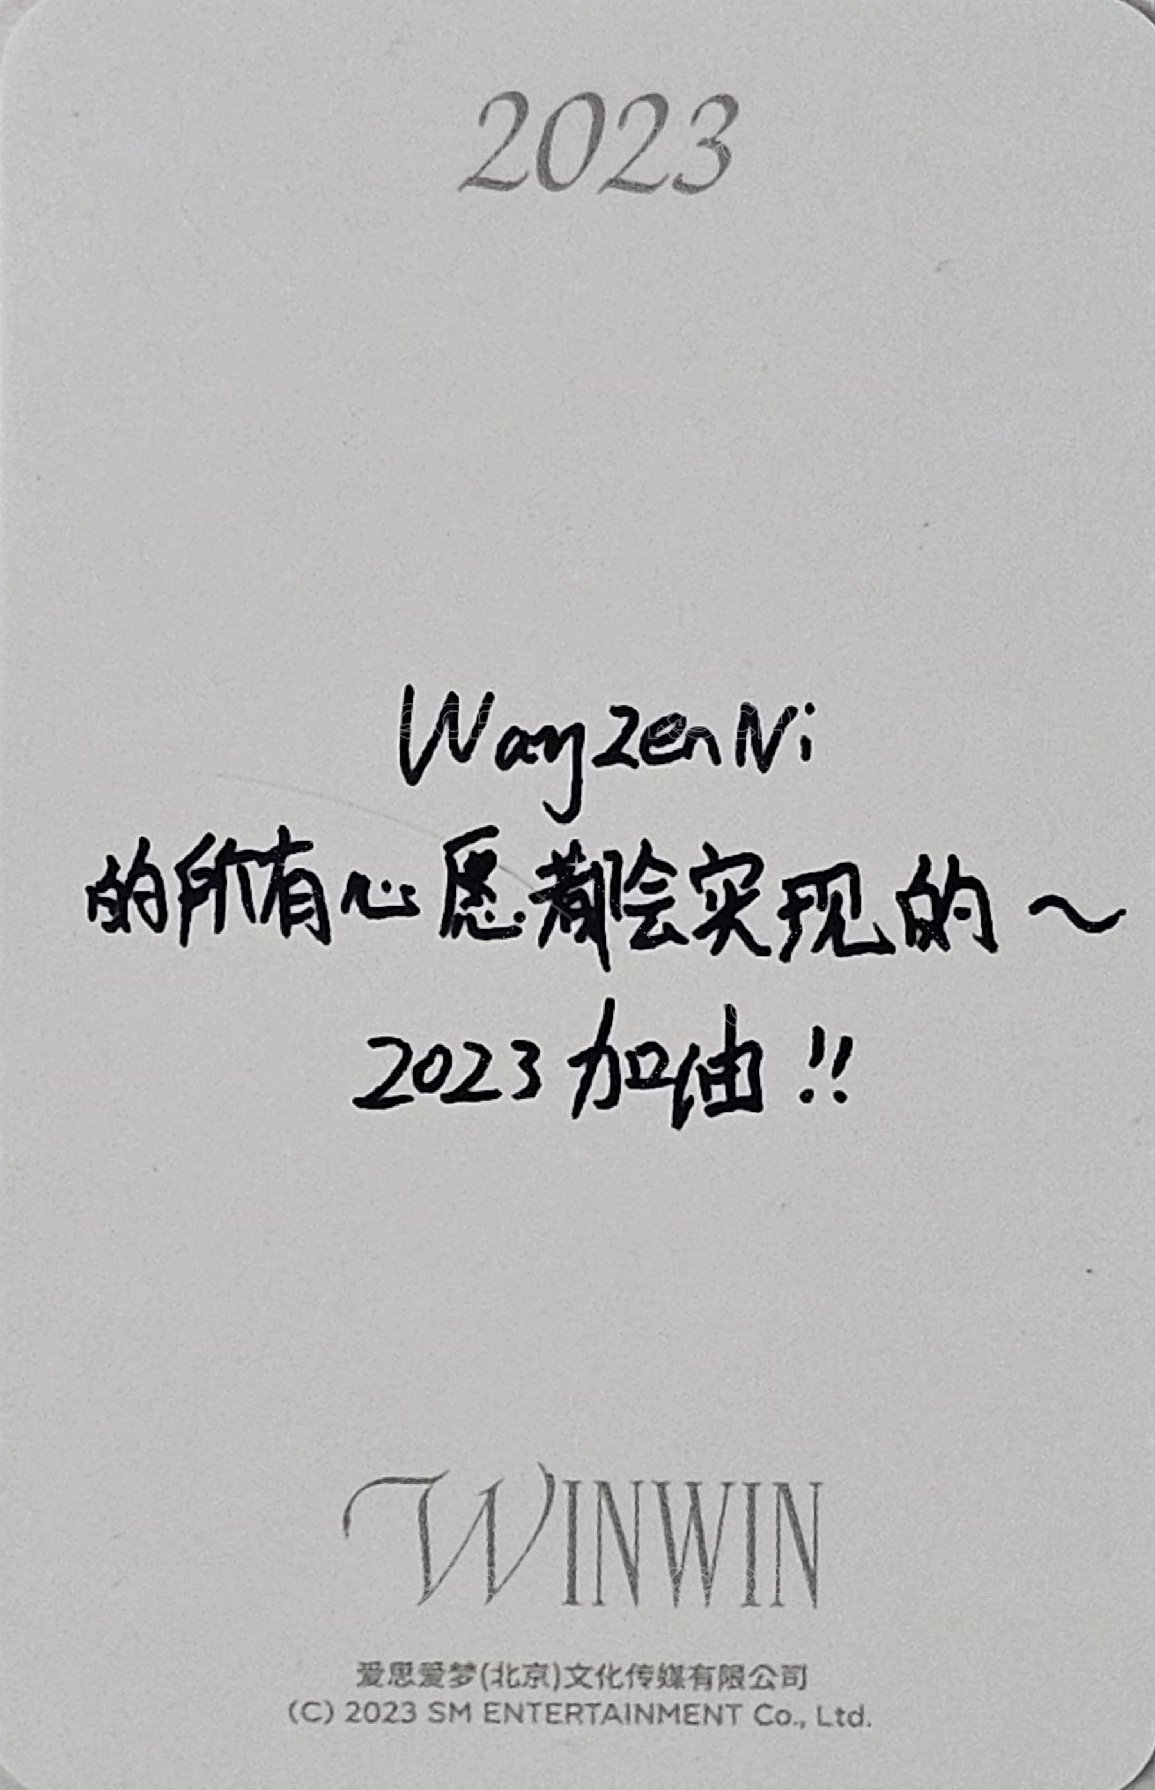 2023
WayZenNi
的所有心愿都会实现的～
2023加油!!
WINWIN
爱思爱梦(北京)文化传媒有限公司
(C) 2023 SM ENTERTAINMENT Co., Ltd.